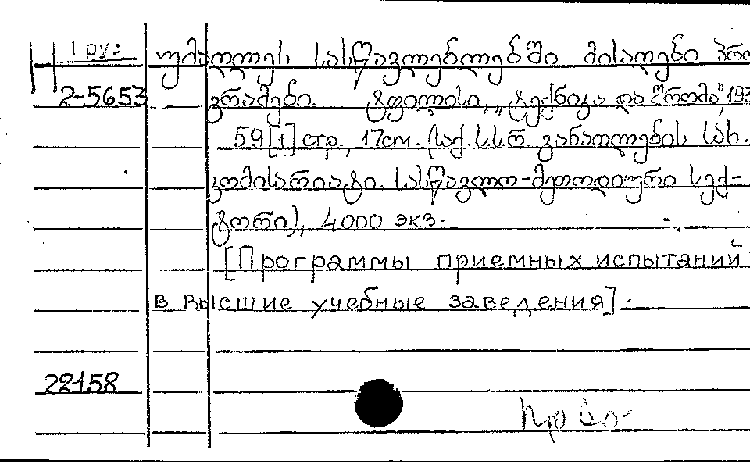 1 груз
უმაღლეს სასწავლებლებში მისაღები პრო
2-5653 გრამები. ტფილისი, „ტექნიკა და შრომა", 193
59[1] стр, 17см. (საქ. ს.ს.რ. განათლების სახ.
კომისარიატი. სასწავლო-მეთოდიური სექ-
ტორი), 4000 экз.
[Программы приемных испытаний
в высшие учебные заведения].
22158